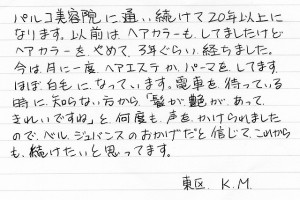 パルコ美容院に通い続けて20年以上に
なります。以前は ヘアカラーも、してましたけど
ヘアカラーを やめて、3年ぐらい経ちました。
今は月に一度、ヘアエステか、パーマをしてます。
ほぼ白毛になっています。電車を待っている
時に知らない方から「髪が艶があって、
きれいですね」と何度も声をかけられました
ので、ベルジュバンスのおかげだと信じて、これから
も、続けたいと思ってます。
東区 K.M.